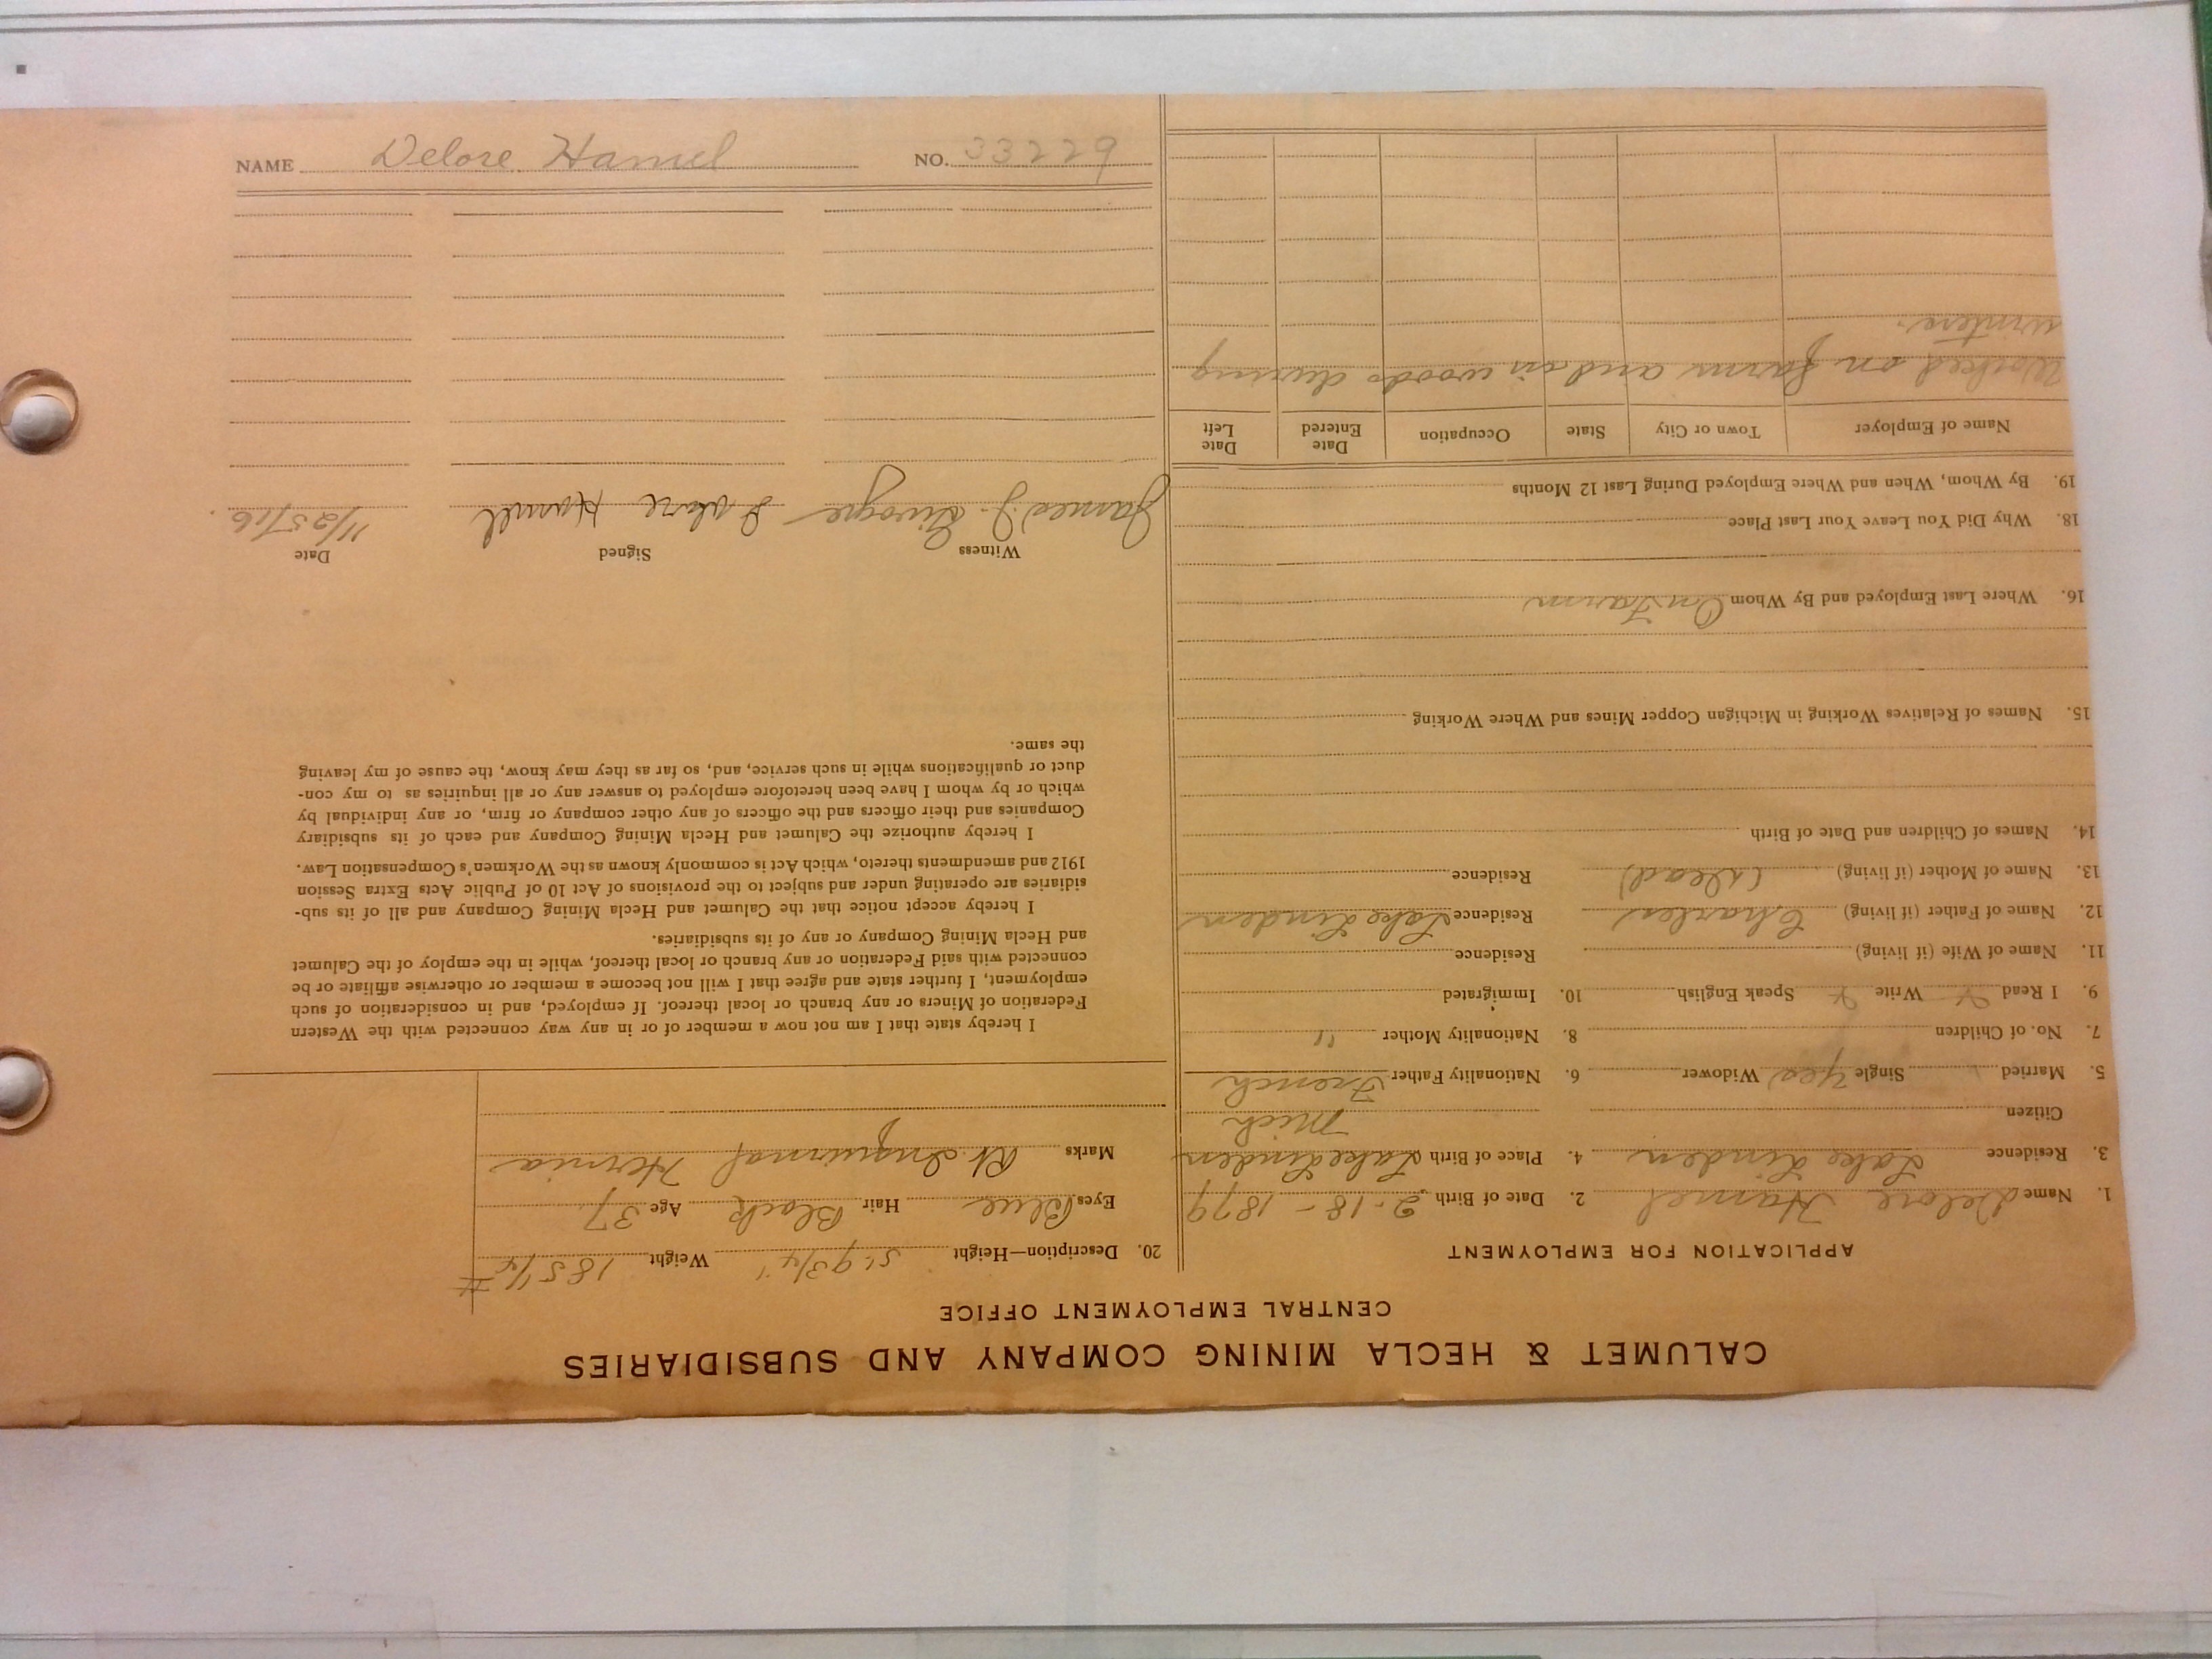 CALUMET & HECLA MINING COMPANY AND SUBSIDIARIES
CENTRAL EMPLOYMENT OFFICE
APPLICATION FOR EMPLOYMENT
1. Name Delore Hamel 2. Date of Birth 2-18-1879
3. Residence Lake Linden 4. Place of Birth Lake Linden
Citizen Mich
5. Married Single Yes Widower 6. Nationality Father French
7. No. of Children 8. Nationality Mother "
9. I Read Write Speak English 10. Immigrated
11. Name of Wife (if living) Residence
12. Name of Father (if living) Charles Residence Lake Linden
13. Name of Mother (if living) (dead) Residence
14. Names of Children and Date of Birth
15. Names of Relatives Working in Michigan Copper Mines and Where Working
16. Where Last Employed and By Whom On Farm
18. Why Did You Leave Your Last Place
19. By Whom, When and Where Employed During Last 12 Months
Name of Employer Town or City State Occupation Date Entered Date Left
Worked on farms and in woods during
winters.
20. Description—Height 5' 9 3/4" Weight 185 1/4 #
Eyes Blue Hair Black Age 37
Marks Rt. Inguinal Hernia
I hereby state that I am not now a member of or in any way connected with the Western
Federation of Miners or any branch or local thereof. If employed, and in consideration of such
employment, I further state and agree that I will not become a member or otherwise affiliate or be
connected with said Federation or any branch or local thereof, while in the employ of the Calumet
and Hecla Mining Company or any of its subsidiaries.
I hereby accept notice that the Calumet and Hecla Mining Company and all of its sub-
sidiaries are operating under and subject to the provisions of Act 10 of Public Acts Extra Session
1912 and amendments thereto, which Act is commonly known as the Workmen's Compensation Law.
I hereby authorize the Calumet and Hecla Mining Company and each of its subsidiary
Companies and their officers and the officers of any other company or firm, or any individual by
which or by whom I have been heretofore employed to answer any or all inquiries as to my con-
duct or qualifications while in such service, and, so far as they may know, the cause of my leaving
the same.
Witness Signed Date
James J. Hamel 11/25/16.
NAME Delore Hamel NO. 33229